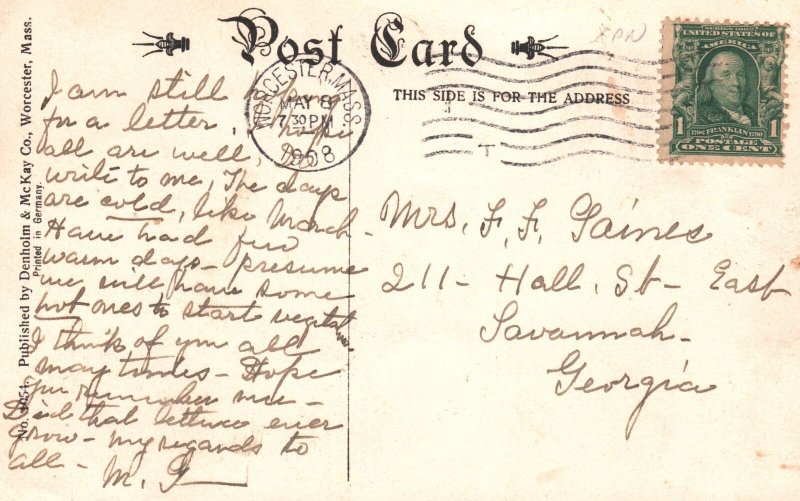 Post Card
THIS SIDE IS FOR THE ADDRESS
WORCESTER, MASS.
MAY 8
7:30 PM
1908
SERIES 1902
UNITED STATES OF AMERICA
1706 FRANKLIN 1790
POSTAGE
1 ONE CENT 1
No. 1051. Published by Denholm & McKay Co., Worcester, Mass.
Printed in Germany.
I am still hoping
for a letter, I hope
all are well, Do
write to me, The days
are cold, like March
Have had few
warm days - presume
we will have some
hot ones to start
I think of you all
many times - Hope
you remember me -
Did that lettuce ever
grow - My regards to
all - M. G
Mrs. F. F. Gaines
211 - Hall, St - East
Savannah -
Georgia